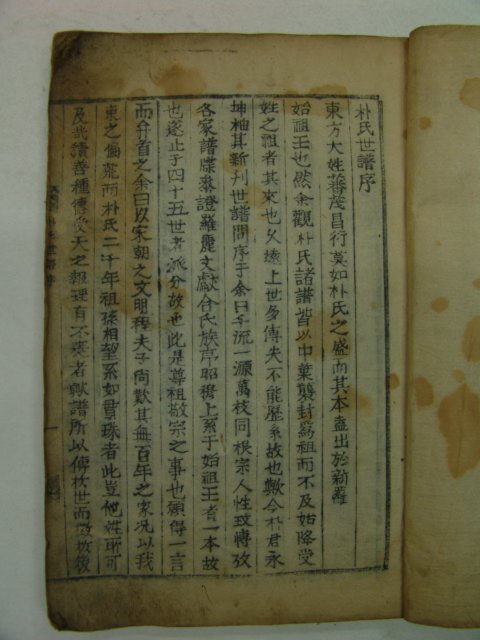 朴氏世譜序
東方大姓蕃茂昌衍莫如朴氏之盛而其本盖出於新羅
始祖王也然余觀朴氏諸譜皆以中葉襲封爲祖而不及始降受
姓之祖者其來也久遠上世多傳失不能歷系故也歟今朴君永
坤袖其新刊世譜問序于余曰千流一源萬枝同根宗人性玟博攷
各家譜牒叅證羅麗文獻合氏族序昭穆上系于始祖王者一本故
也遂止于四十五世者派分故也此是尊祖敬宗之事也願得一言
而弁首之余曰以宋朝之文明程夫子尚歎其無百年之家况以我
東之偏荒而朴氏二千年祖孫相望系如貫珠者此豈他姓所可
及哉積善種德受天之報理有不忒者歟譜所以傳於世而徵於後